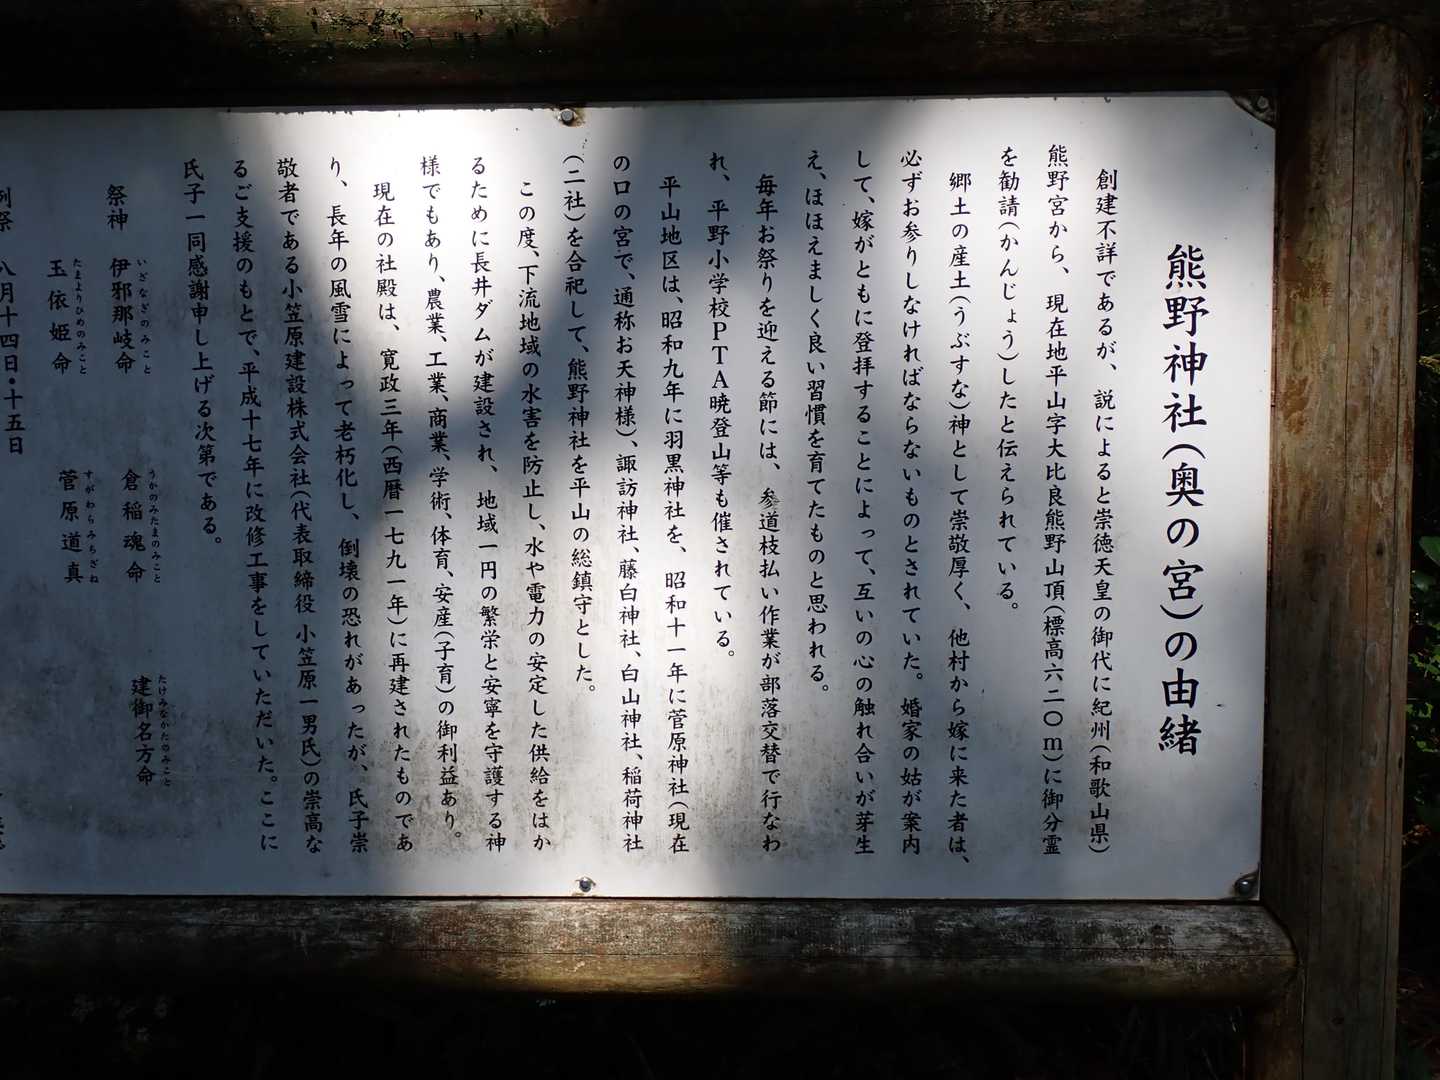 熊野神社(奥の宮)の由緒
創建不詳であるが、説によると崇徳天皇の御代に紀州(和歌山県)
熊野宮から、現在地平山字大比良熊野山頂(標高六二〇m)に御分霊
を勧請(かんじょう)したと伝えられている。
郷土の産土(うぶすな)神として崇敬厚く、他村から嫁に来た者は、
必ずお参りしなければならないものとされていた。婚家の姑が案内
して、嫁がともに登拝することによって、互いの心の触れ合いが芽生
え、ほほえましく良い習慣を育てたものと思われる。
毎年お祭りを迎える節には、参道枝払い作業が部落交替で行なわ
れ、平野小学校PTA暁登山等も催されている。
平山地区は、昭和九年に羽黒神社を、昭和十一年に菅原神社(現在
の口の宮で、通称お天神様)、諏訪神社、藤白神社、白山神社、稲荷神社
(二社)を合祀して、熊野神社を平山の総鎮守とした。
この度、下流地域の水害を防止し、水や電力の安定した供給をはか
るために長井ダムが建設され、地域一円の繁栄と安寧を守護する神
様でもあり、農業、工業、商業、学術、体育、安産(子育)の御利益あり。
現在の社殿は、寛政三年(西暦一七九一年)に再建されたものであ
り、長年の風雪によって老朽化し、倒壊の恐れがあったが、氏子崇
敬者である小笠原建設株式会社(代表取締役 小笠原一男氏)の崇高な
るご支援のもとで、平成十七年に改修工事をしていただいた。ここに
氏子一同感謝申し上げる次第である。
祭神 伊邪那岐命 いざなぎのみこと 倉稲魂命 うかのみたまのみこと 建御名方命 たけみなかたのみこと
玉依姫命 たまよりひめのみこと 菅原道真 すがわらみちざね
例祭 八月十四日・十五日